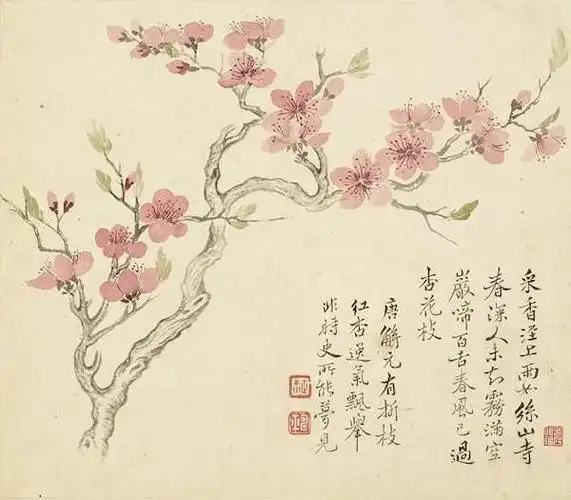 采香涇上雨如絲山寺
春深人未知霧滿空
巖啼百舌春風已過
杏花枝
唐解元有折枝
紅杏逸氣飄舉
非時史所能夢見